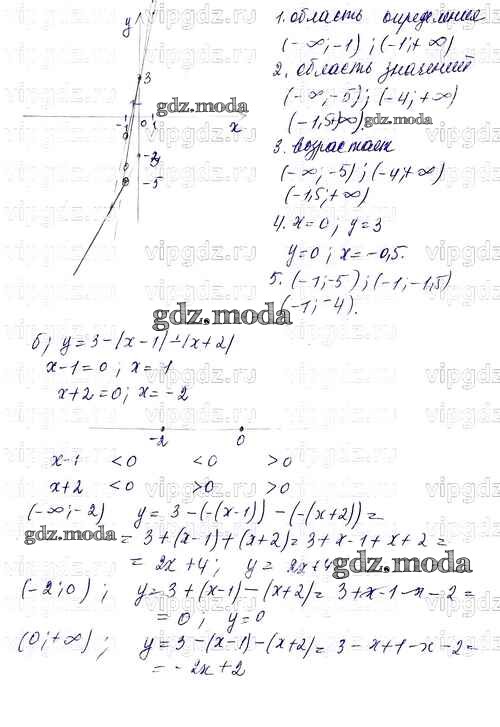 1. область определения
(-∞; -1) ; (-1; +∞)
2. область значений
(-∞; -5) ; (-4; +∞)
(-1,5; +∞).
3. возрастает
(-∞; -5) ; (-4; +∞)
(-1,5; +∞)
4. x=0 ; y=3
y=0 ; x=-0,5.
5. (-1; -5) ; (-1; -1,5)
(-1; -4).
y
3
-1
0
1
x
-2
-5
gdz.moda
gdz.moda
gdz.moda
б) y = 3-|x-1|-|x+2|
x-1=0 ; x=1
x+2=0; x=-2
-2 0
x-1 <0 <0 >0
x+2 <0 >0 >0
(-∞; -2) y = 3-(-(x-1))-(-(x+2))=
gdz.moda = 3+(x-1)+(x+2)= 3+x-1+x+2 =
= 2x+4 ; y = 2x+4
gdz.moda
(-2; 0) ; y = 3+(x-1)-(x+2)= 3+x-1-x-2 =
= 0 ; y=0
(0; +∞) ; y = 3-(x-1)-(x+2)= 3-x+1-x-2=
= -2x+2
vipgdz.ru